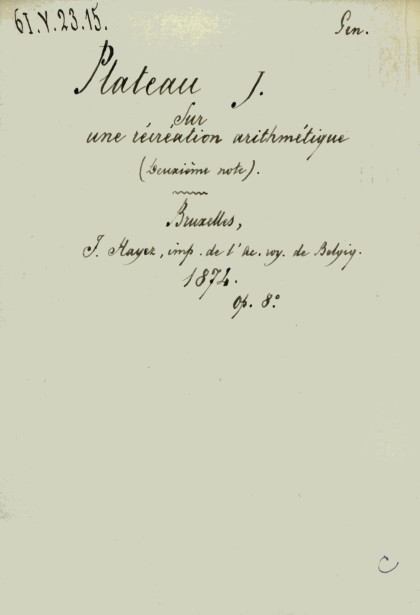 61.V.23.15.
Gen.
Plateau J.
Sur
une récréation arithmétique
(Deuxième note).
Bruxelles,
F. Hayez, imp. de l'Ac. roy. de Belgiq.
1874.
op. 8°
C